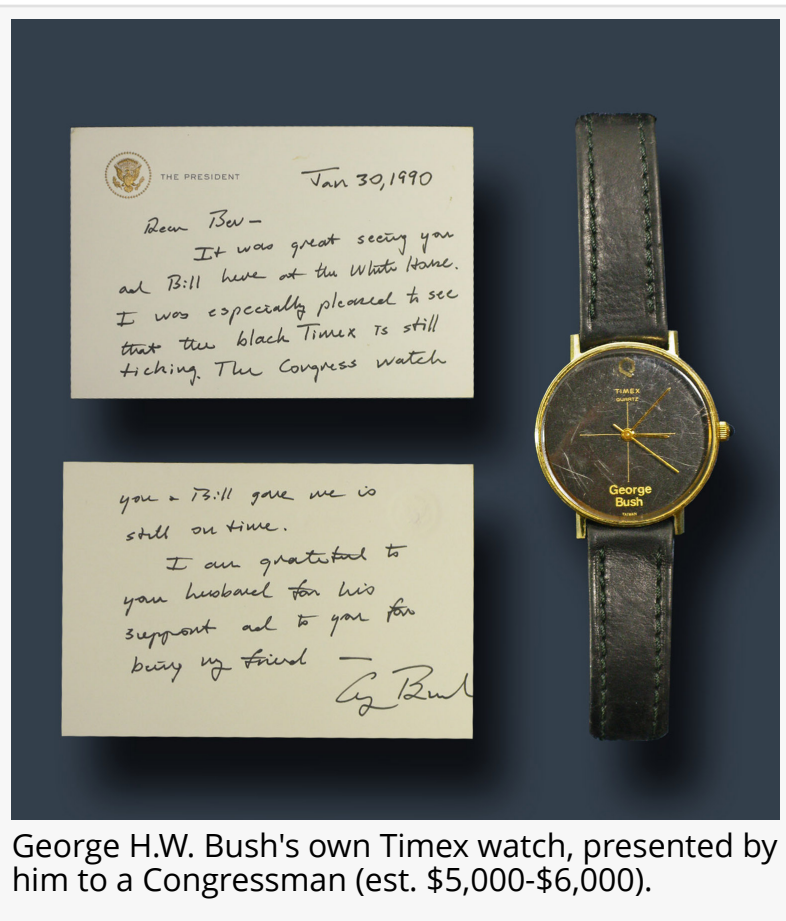 THE PRESIDENT
Jan 30, 1990
Dear Bev –
It was great seeing you
and Bill here at the White House.
I was especially pleased to see
that the black Timex is still
ticking. The Congress watch
you & Bill gave me is
still on time.
I am grateful to
your husband for his
support and to you for
being my friend —
Bush
TIMEX
QUARTZ
George
Bush
George H.W. Bush's own Timex watch, presented by
him to a Congressman (est. $5,000-$6,000).